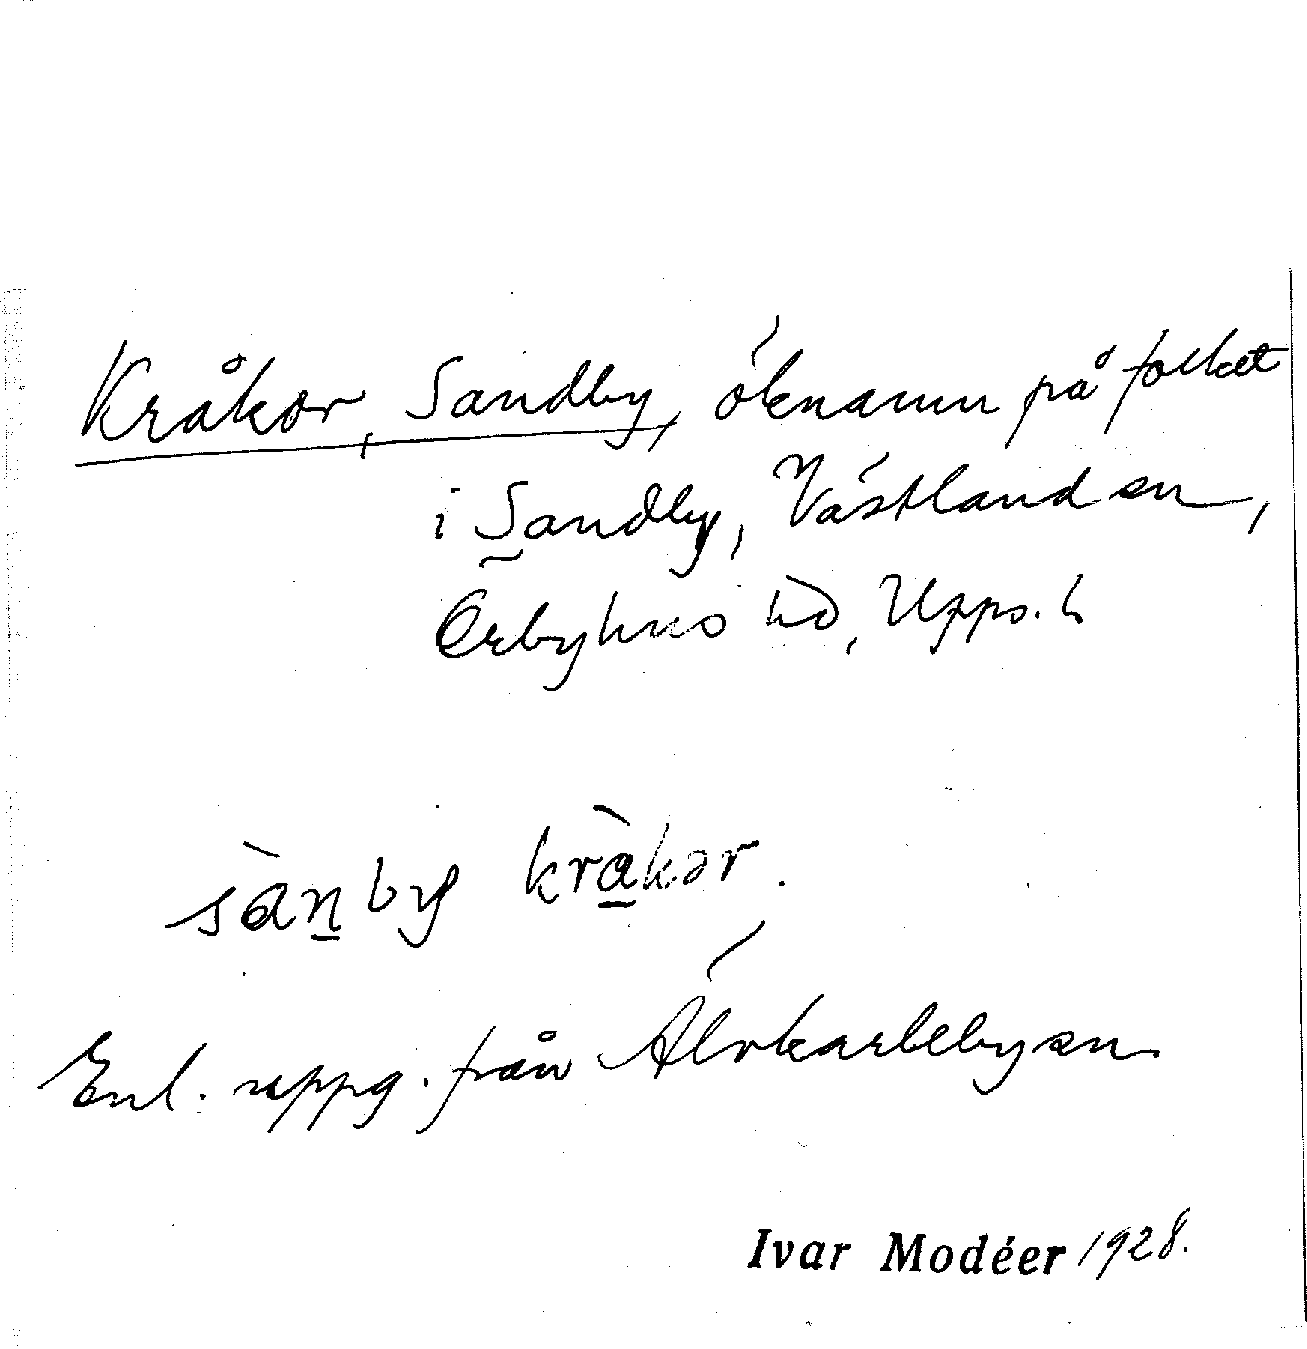 Kråkor, Sandby, öknamn på folket
i Sandby, Västland sn,
Örbyhus hd, Upps. l.
sànby kràkər.
Enl. uppg. från Älvkarleby sn.
Ivar Modéer 1928.